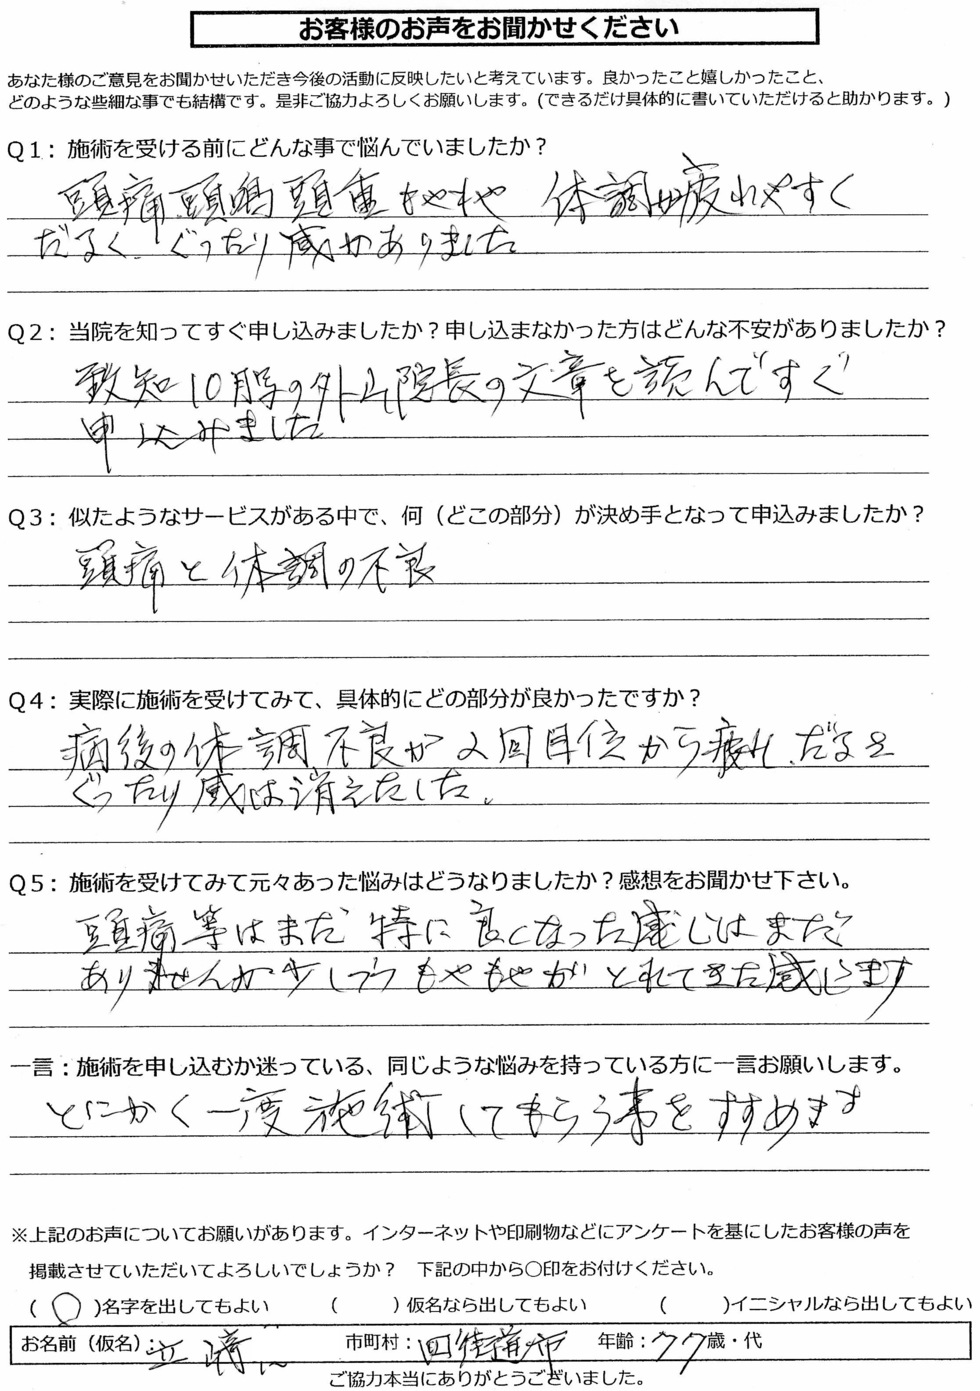 お客様のお声をお聞かせください
あなた様のご意見をお聞かせいただき今後の活動に反映したいと考えています。良かったこと嬉しかったこと、
どのような些細な事でも結構です。是非ご協力よろしくお願いします。(できるだけ具体的に書いていただけると助かります。)
Q1：施術を受ける前にどんな事で悩んでいましたか？
頭痛 頭鳴 頭重 もやもや 体調 疲れやすく
だるく、ぐったり感がありました
Q2：当院を知ってすぐ申し込みましたか？申し込まなかった方はどんな不安がありましたか？
致知10月号の外山院長の文章を読んですぐ
申し込みました
Q3：似たようなサービスがある中で、何（どこの部分）が決め手となって申込みましたか？
頭痛と体調の不良
Q4：実際に施術を受けてみて、具体的にどの部分が良かったですか？
病後の体調不良が2回目位から疲れ、だるさ
ぐったり感は消えたした。
Q5：施術を受けてみて元々あった悩みはどうなりましたか？感想をお聞かせ下さい。
頭痛等はまだ特に良くなった感じはまだ
ありませんが少しづつもやもやがとれてきた感じます
一言：施術を申し込むか迷っている、同じような悩みを持っている方に一言お願いします。
とにかく一度施術してもらう事をすすめます
※上記のお声についてお願いがあります。インターネットや印刷物などにアンケートを基にしたお客様の声を
掲載させていただいてよろしいでしょうか？　下記の中から〇印をお付けください。
(〇)名字を出してもよい　(　)仮名なら出してもよい　(　)イニシャルなら出してもよい
お名前（仮名）： 市町村：四街道市 年齢：77歳・代
ご協力本当にありがとうございました。